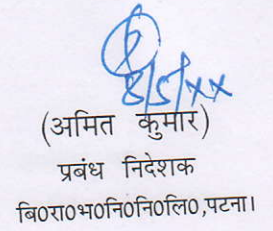 8/5/xx
(अमित कुमार)
प्रबंध निदेशक
बि0रा0भ0नि0नि0लि0,पटना।